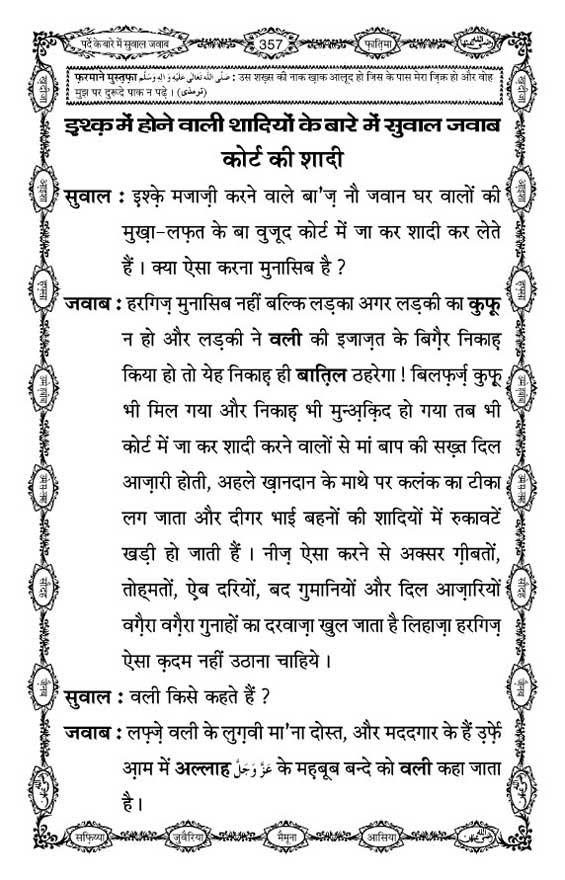 पर्दे के बारे में सुवाल जवाब
357
फ़ातिमा
फ़रमाने मुस्तफ़ा صَلَّى اللهُ تَعَالٰى عَلَيْهِ وَاٰلِهٖ وَسَلَّم : उस शख़्स की नाक ख़ाक आलूद हो जिस के पास मेरा ज़िक्र हो और वोह
मुझ पर दुरूदे पाक न पढ़े । (ترمذی)
इश्क़ में होने वाली शादियों के बारे में सुवाल जवाब
कोर्ट की शादी
सुवाल : इश्क़े मजाज़ी करने वाले बा'ज़ नौ जवान घर वालों की
मुख़ा-लफ़त के बा वुजूद कोर्ट में जा कर शादी कर लेते
हैं । क्या ऐसा करना मुनासिब है ?
जवाब : हरगिज़ मुनासिब नहीं बल्कि लड़का अगर लड़की का कुफू
न हो और लड़की ने वली की इजाज़त के बिग़ैर निकाह
किया हो तो येह निकाह ही बातिल ठहरेगा ! बिलफ़र्ज़ कुफू
भी मिल गया और निकाह भी मुन्अ़क़िद हो गया तब भी
कोर्ट में जा कर शादी करने वालों से मां बाप की सख़्त दिल
आज़ारी होती, अहले ख़ानदान के माथे पर कलंक का टीका
लग जाता और दीगर भाई बहनों की शादियों में रुकावटें
खड़ी हो जाती हैं । नीज़ ऐसा करने से अक्सर ग़ीबतों,
तोहमतों, ऐ़ब दरियों, बद गुमानियों और दिल आज़ारियों
वग़ैरा वग़ैरा गुनाहों का दरवाज़ा खुल जाता है लिहाज़ा हरगिज़
ऐसा क़दम नहीं उठाना चाहिये ।
सुवाल : वली किसे कहते हैं ?
जवाब : लफ़्ज़े वली के लुग़वी मा'ना दोस्त, और मददगार के हैं उ़र्फ़े
आ़म में अल्लाह عَزَّوَجَلَّ के महबूब बन्दे को वली कहा जाता
है ।
सफ़िय्या
जुवैरिया
मैमूना
आसिया